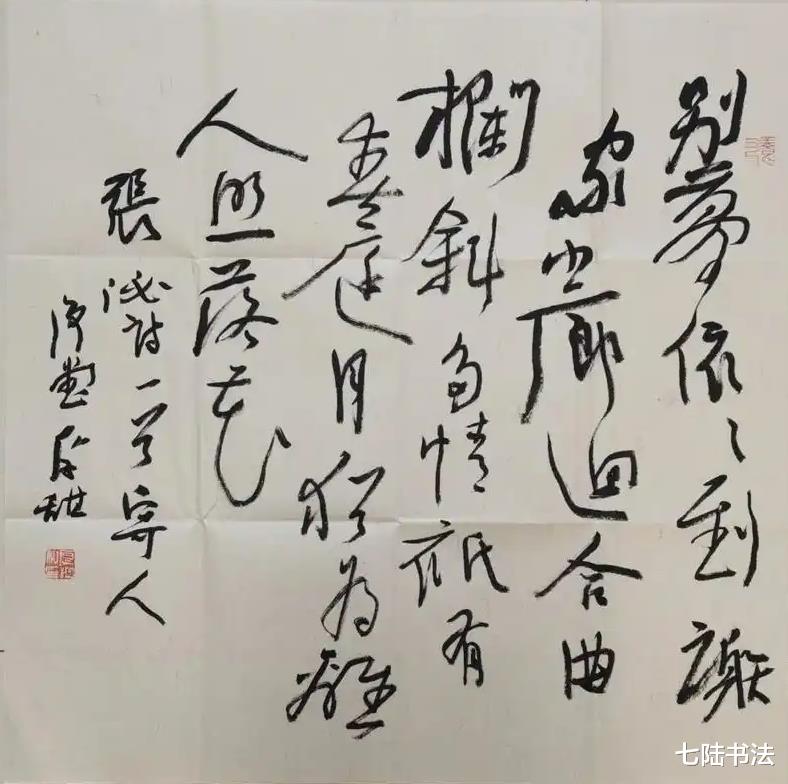 别夢依々到謝
家小廊迴合曲
欄斜多情祇有
春庭月猶為離
人照落花
張泌詩一首寄人
七陆书法